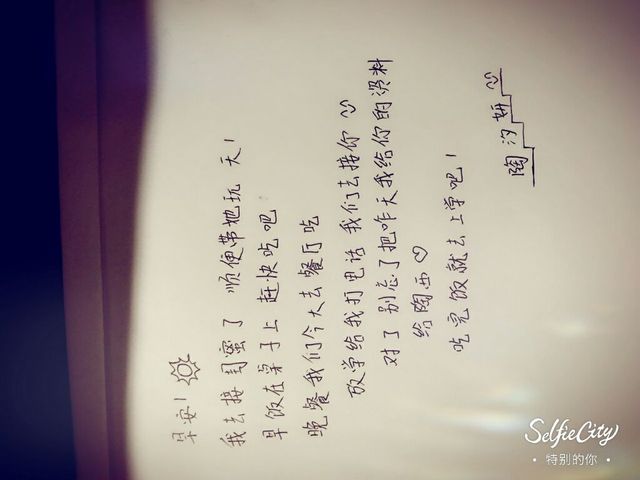 早安!
我去接闺蜜了 顺便带她玩 天!
早饭在桌子上 赶快吃吧
晚餐我们今天去餐厅吃
放学给我打电话 我们去接你
对了 别忘了把昨天我给你的资料
给陶西♡
吃完饭就去上学吧!
陶汐妍
SelfieCity
特别的你